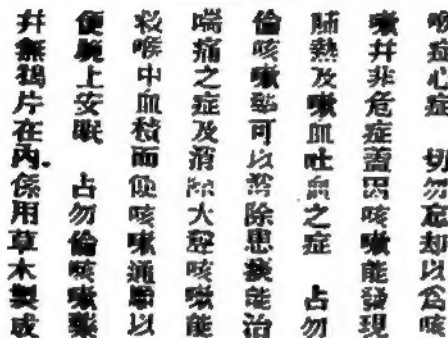 喘症心症　切勿忘却以爲咳
嗽並非危症蓋因咳嗽能發現
肺熱及嗽血吐血之症　占勿
倫咳嗽藥可以消除患痰能治
喘痛之症及消除大聲咳嗽能
救喉中血積而使咳嗽通暢以
便晚上安眠　占勿倫咳嗽藥
並無鴉片在內。係用草木製成